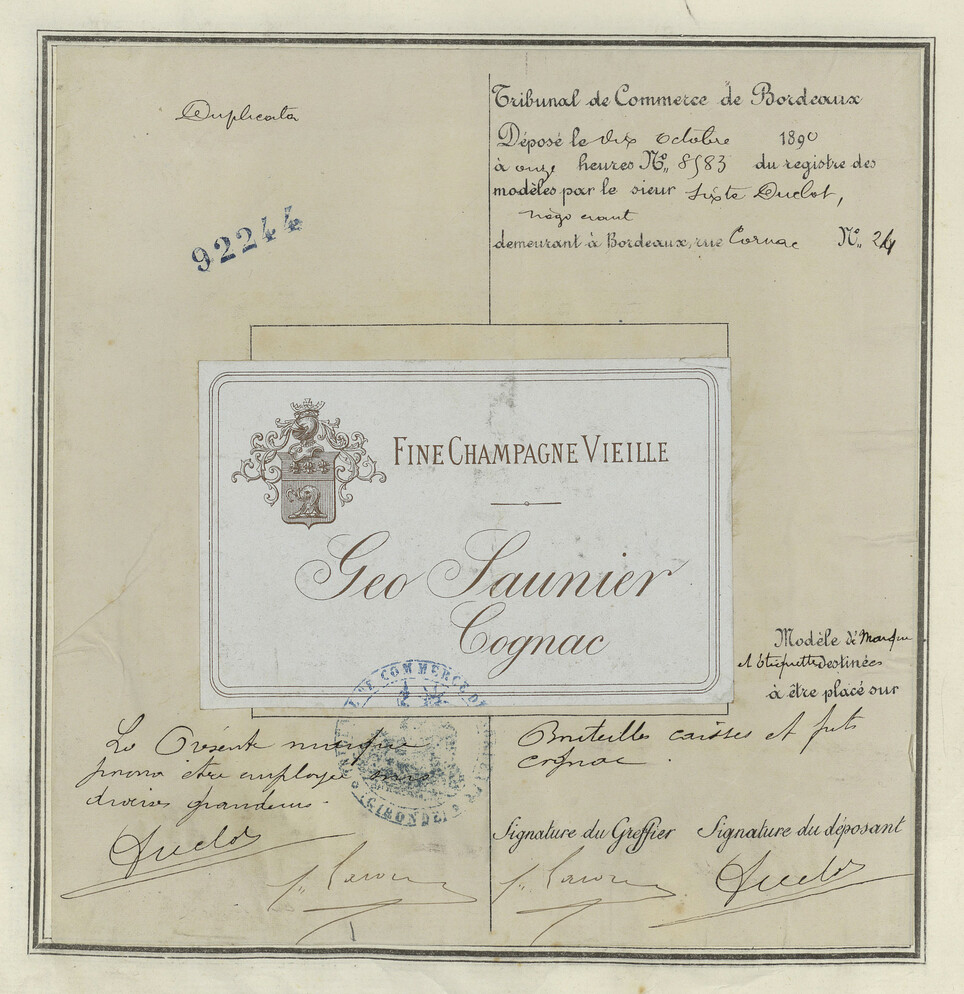 Duplicata
92244
Tribunal de Commerce de Bordeaux
Déposé le dix octobre 1890
à onze heures Nº 8583 du registre des
modèles par le sieur Sixte Duclot,
négociant
demeurant à Bordeaux, rue Cornac Nº 24
FINE CHAMPAGNE VIEILLE
Geo Saunier
Cognac
Modèle de Marque
et Etiquette Destinées
à être placé sur
Bouteilles caisses et futs
cognac.
DE COMMERCE DE
(GIRONDE)
La Présente marque
pourra être employée sous
diverses grandeurs.
Duclot
Signature du Greffier Signature du déposant
Duclot